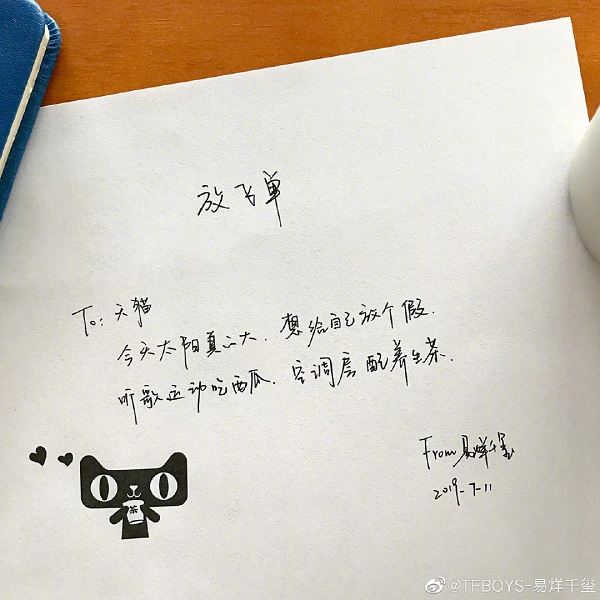 放飞单
To: 天猫
今天太阳真心大, 想给自己放个假.
听歌运动吃西瓜, 空调房配养生茶.
From 易烊千玺
2019-7-11
茶
@TFBOYS-易烊千玺